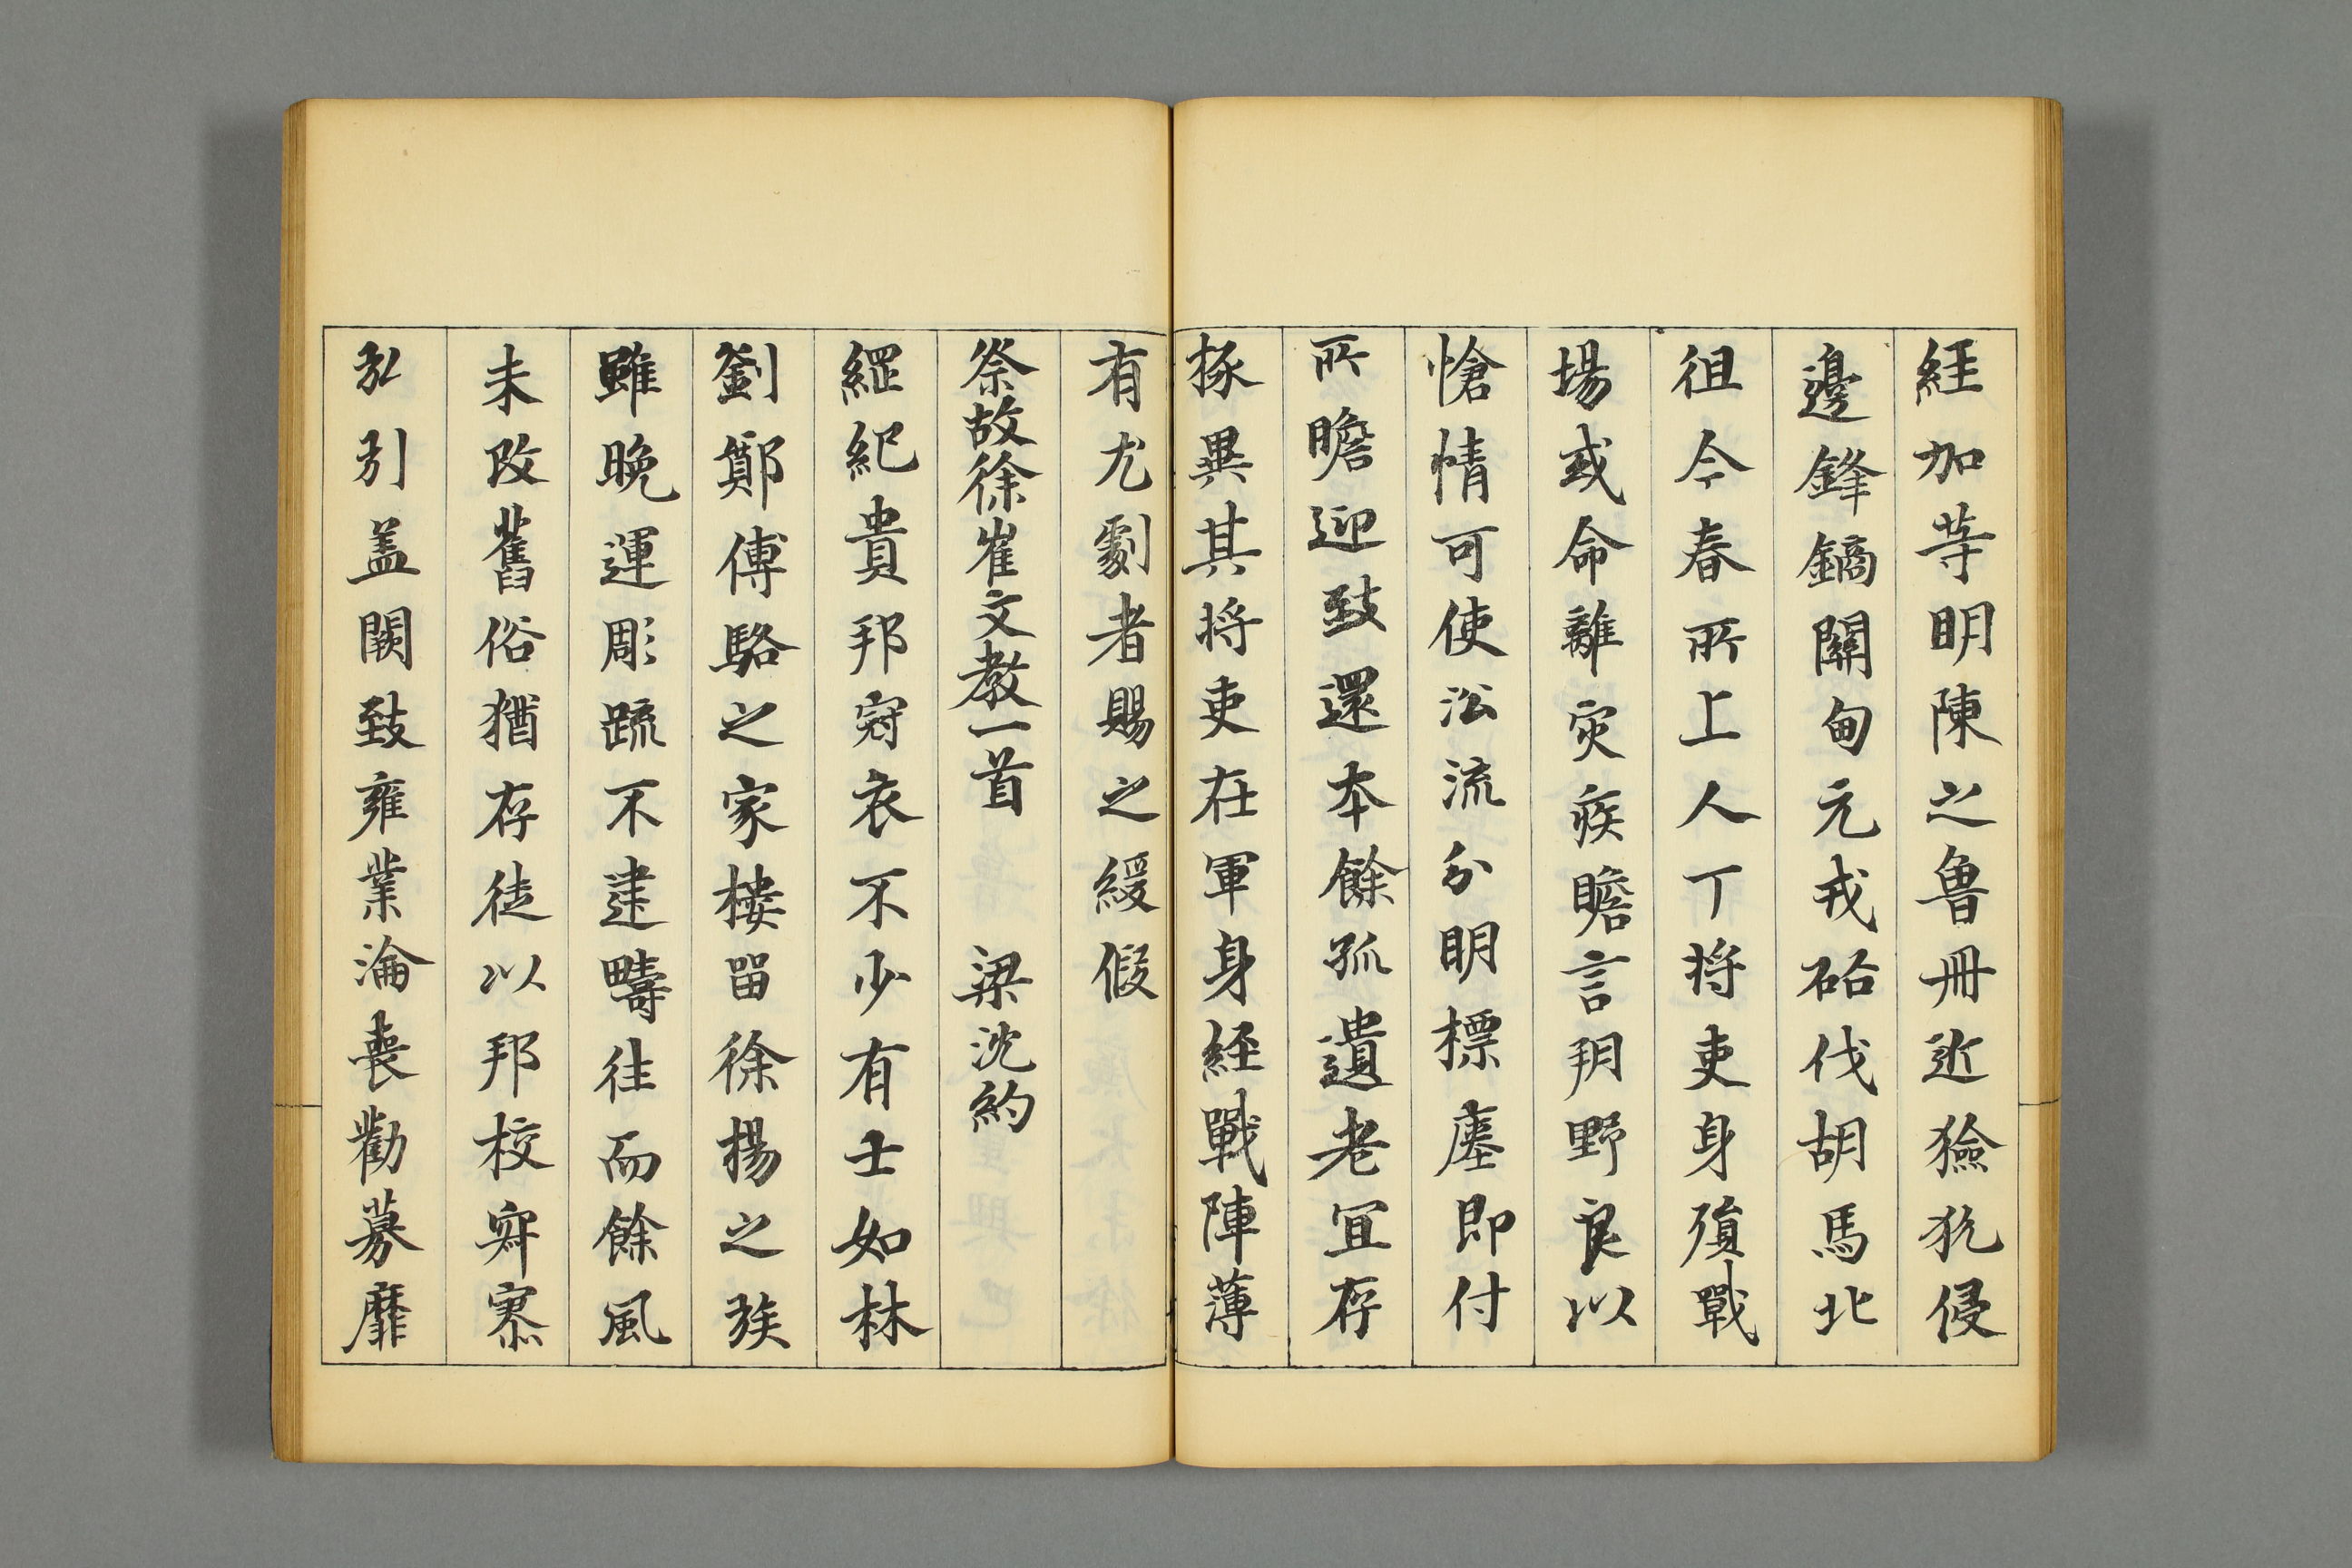 経加等明陳之魯冊近獫犹侵
邊鋒鏑關甸元戎硲伐胡馬北
徂今春所上人丁将吏身殞戰
場或命離灾疾瞻言玥野良以
愴情可使訟流分明標塟即付
所瞻迎致還本餘孤遺老宜存
掭異其将吏在軍身経戰陣薄
有尤劇者賜之緩假
祭故徐崔文教一首 梁沈約
繦紀貴邦冠衣不少有士如林
劉鄭傅駱之家樓留徐揚之族
雖晚運彫䟽不逮疇往而餘風
未改舊俗猶存徒以邦校寂寥
弘引盖闕致雍業淪喪勸募靡